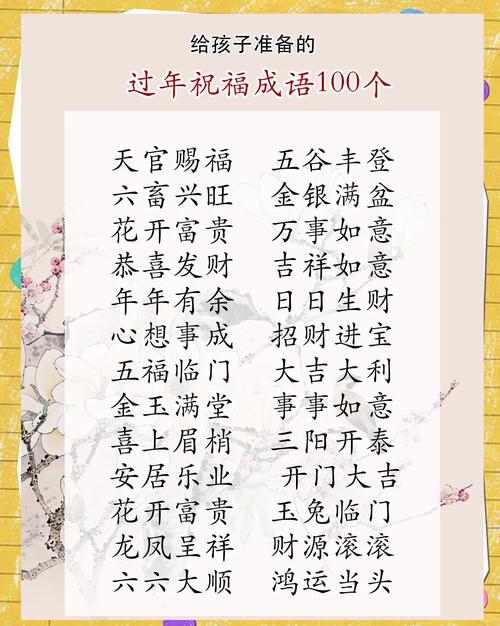 给孩子准备的
过年祝福成语100个
天官赐福 五谷丰登
六畜兴旺 金银满盆
花开富贵 万事如意
恭喜发财 吉祥如意
年年有余 日日生财
心想事成 招财进宝
五福临门 大吉大利
金玉满堂 事事如意
喜上眉梢 三阳开泰
安居乐业 开门大吉
花开富贵 玉兔临门
龙凤呈祥 财源滚滚
六六大顺 鸿运当头